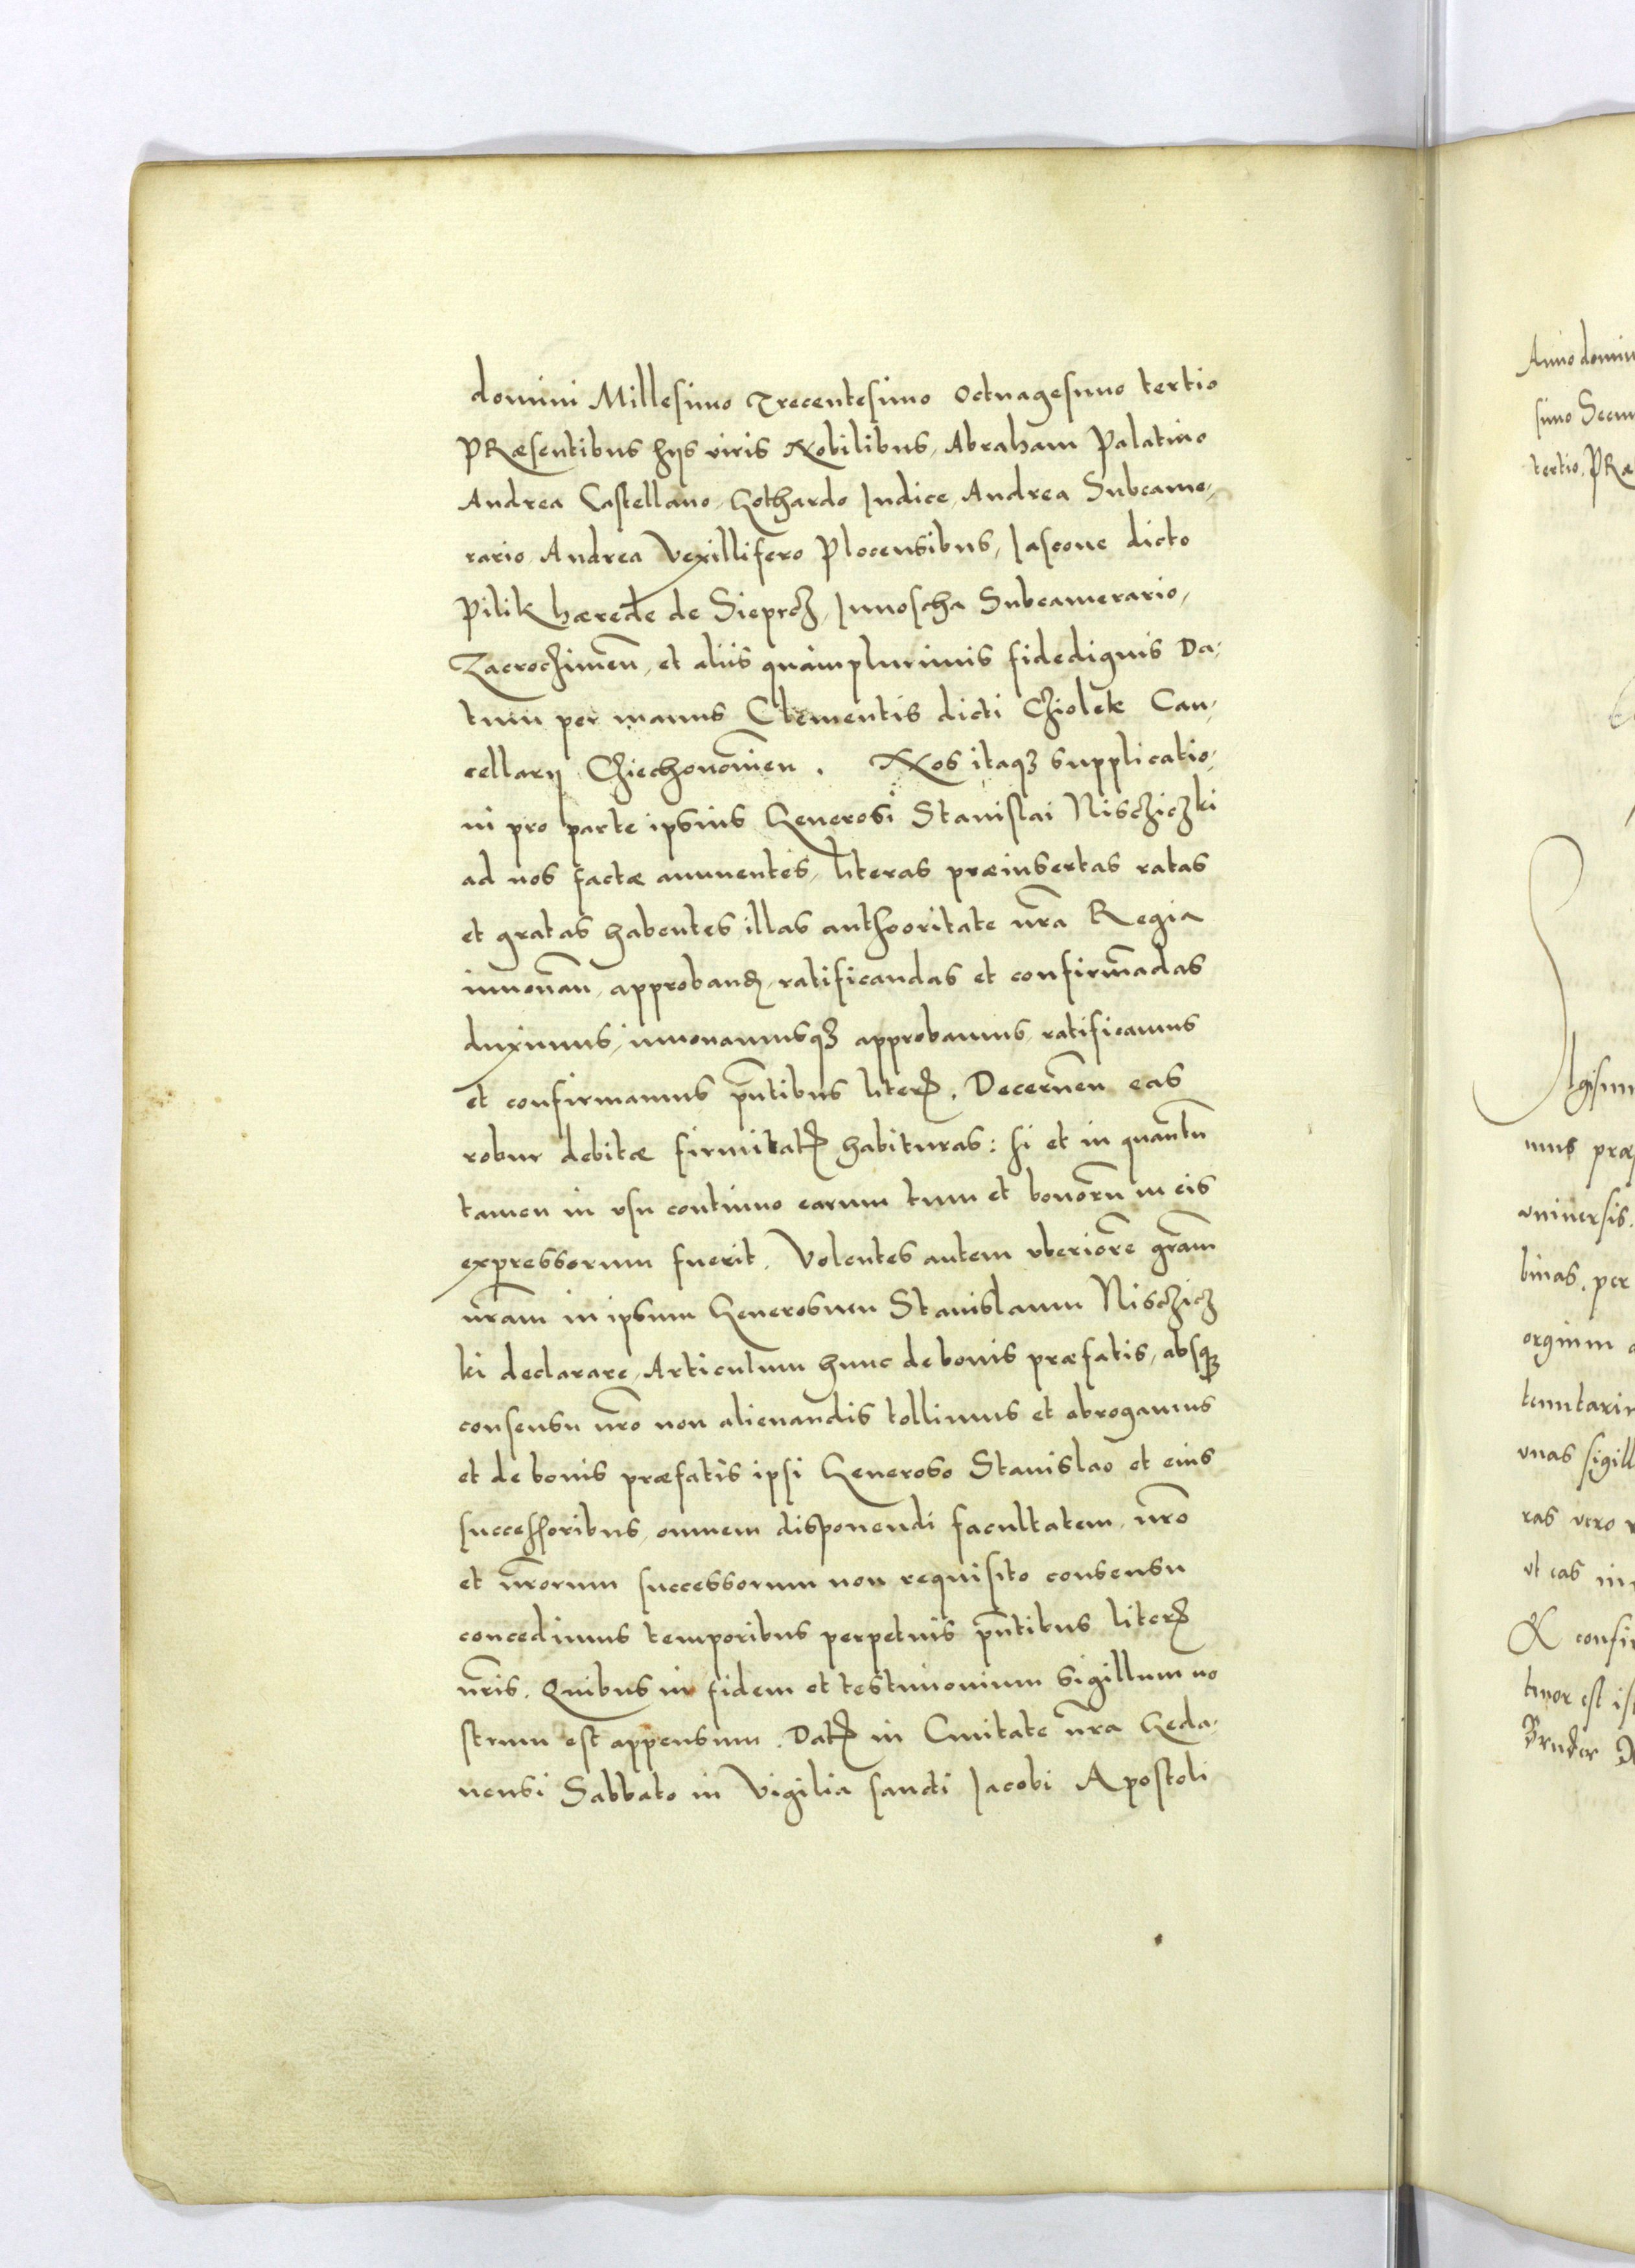 domini Millesimo Trecentesimo Octuagesimo tertio
PRæsentibus hijs viris Nobilibus, Abraham Palatino
Andrea Castellano, Gothardo Iudice, Andrea Subcame,
rario, Andrea Vexillifero Plocensibus, Jascone dicto
Pilik hærede de Sieprcz, Jmoscha Subcamerario,
Zacroczimeñ, et aliis quàmplurimis fidedignis Da,
tum per manus Clementis dicti Cziolek Can,
cellarij Cziechonomieñ. Nos itaq3 supplicatio,
ni pro parte ipsius Generosi Stanislai Nisczickzi
ad nos factæ annuentes, literas præinsertas ratas
et gratas habentes illas authooritate nr̃a Regia
innouañ, approbanđ, ratificandas et confirmãdas
duximus, innouamusq3 approbamus, ratificamus
et confirmamus pñtibus literꝭ. Decerneñ eas
robur debitæ firmitatꝭ habituras: si et in quantũ
tamen in vsu continuo earum tum et bonorũ in eis
expressorum fuerit. Volentes autem vberiorẽ gr̃am
nr̃am in ipsum Generosum Stanislaum Nisczicz
ki declarare, Articulum hunc de bonis præfatis, absq3
consensu nr̃o non alienandis tollimus et abrogamus
et de bonis præfatis ipsi Generoso Stanislao et eius
successoribus, omnem disponendi facultatem, nr̃o
et nr̃orum successorum non requisito consensu
concedimus temporibus perpetuis pñtibus literꝭ
nr̃is. Quibus in fidem et testimonium sigillum no
strum est appensum. Datꝭ in Ciuitate nr̃a Geda,
nensi Sabbato in Vigilia sancti Jacobi Apostoli
Anno domin
simo Secun
tertio. PRæ
lgisim
mus præ
vniuersis.
binas, per
tenutariu
vnas sigill
ras vero
vt eas in
Et confir
tenor est is
Bruder